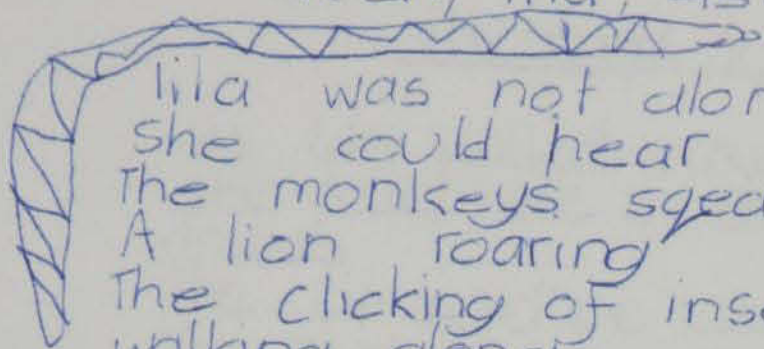 lila was not alon
she could hear
The monkeys sqea
A lion roaring
The clicking of inse
walking along